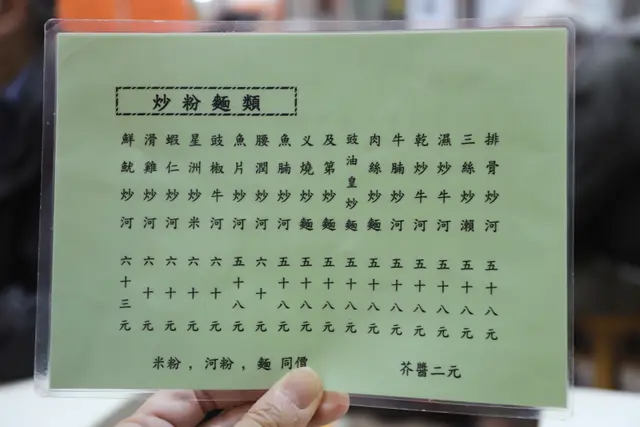 炒粉麵類
排骨炒河 五十八元
三絲炒瀨 五十八元
濕炒牛河 五十八元
乾炒牛河 五十八元
牛腩炒河 五十八元
肉絲炒麵 五十八元
豉油皇炒麵 五十八元
及第炒麵 五十八元
义燒炒麵 五十八元
魚腩炒河 五十八元
腰潤炒河 六十元
魚片炒河 五十八元
豉椒牛河 六十元
星洲炒米 六十元
蝦仁炒河 六十元
滑雞炒河 六十元
鮮魷炒河 六十三元
米粉,河粉,麵 同價
芥醬二元